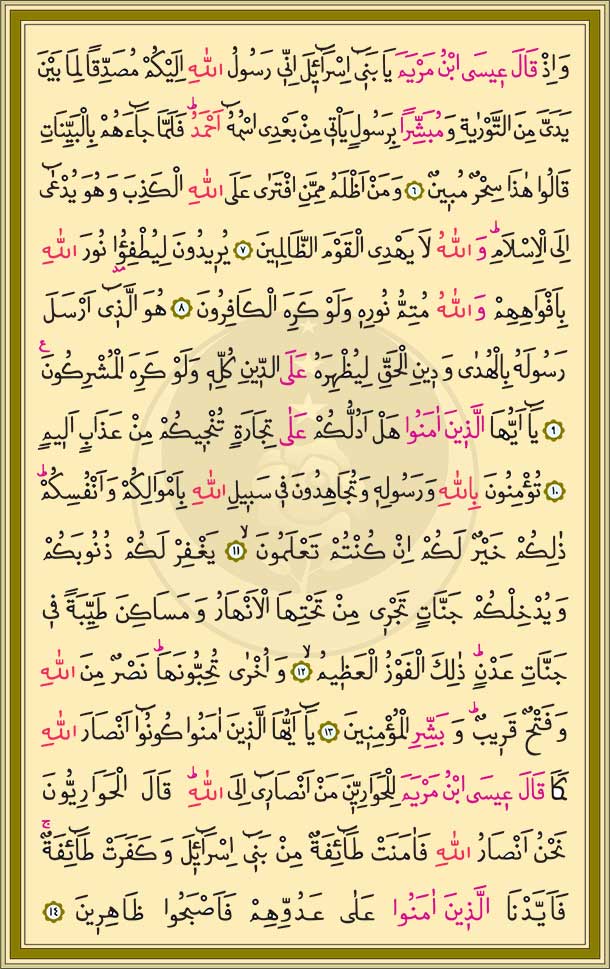 وَاِذْ قَالَ عٖيسَى ابْنُ مَرْيَمَ يَا بَنٖٓى اِسْرَٓائٖلَ اِنّٖى رَسُولُ اللّٰهِ اِلَيْكُمْ مُصَدِّقًا لِمَا بَيْنَ
يَدَىَّ مِنَ التَّوْرٰيةِ وَمُبَشِّرًا بِرَسُولٍ يَاْتٖى مِنْ بَعْدِى اسْمُهُٓ اَحْمَدُؕ فَلَمَّا جَٓاءَهُمْ بِالْبَيِّنَاتِ
قَالُوا هٰذَا سِحْرٌ مُبٖينٌ ﴿٦﴾ وَمَنْ اَظْلَمُ مِمَّنِ افْتَرٰى عَلَى اللّٰهِ الْكَذِبَ وَهُوَ يُدْعٰٓى
اِلَى الْاِسْلَامِؕ وَاللّٰهُ لَا يَهْدِى الْقَوْمَ الظَّالِمٖينَ ﴿٧﴾ يُرٖيدُونَ لِيُطْفِؤُ۫ا نُورَ اللّٰهِ
بِاَفْوَاهِهِمْ وَاللّٰهُ مُتِمُّ نُورِهٖ وَلَوْ كَرِهَ الْكَافِرُونَ ﴿٨﴾ هُوَ الَّذٖٓى اَرْسَلَ
رَسُولَهُ بِالْهُدٰى وَدٖينِ الْحَقِّ لِيُظْهِرَهُ عَلَى الدّٖينِ كُلِّهٖ وَلَوْ كَرِهَ الْمُشْرِكُونَ ع
﴿٩﴾ يَٓا اَيُّهَا الَّذٖينَ اٰمَنُوا هَلْ اَدُلُّكُمْ عَلٰى تِجَارَةٍ تُنْجٖيكُمْ مِنْ عَذَابٍ اَلٖيمٍ
﴿١٠﴾ تُؤْمِنُونَ بِاللّٰهِ وَرَسُولِهٖ وَتُجَاهِدُونَ فٖى سَبٖيلِ اللّٰهِ بِاَمْوَالِكُمْ وَاَنْفُسِكُمْؕ
ذٰلِكُمْ خَيْرٌ لَكُمْ اِنْ كُنْتُمْ تَعْلَمُونَۙ ﴿١١﴾ يَغْفِرْ لَكُمْ ذُنُوبَكُمْ
وَيُدْخِلْكُمْ جَنَّاتٍ تَجْرٖى مِنْ تَحْتِهَا الْاَنْهَارُ وَمَسَاكِنَ طَيِّبَةً فٖى
جَنَّاتِ عَدْنٍؕ ذٰلِكَ الْفَوْزُ الْعَظٖيمُۙ ﴿١٢﴾ وَاُخْرٰى تُحِبُّونَهَاؕ نَصْرٌ مِنَ اللّٰهِ
وَفَتْحٌ قَرٖيبٌؕ وَبَشِّرِ الْمُؤْمِنٖينَ ﴿١٣﴾ يَٓا اَيُّهَا الَّذٖينَ اٰمَنُوا كُونُٓوا اَنْصَارَ اللّٰهِ
كَمَا قَالَ عٖيسَى ابْنُ مَرْيَمَ لِلْحَوَارِيّٖنَ مَنْ اَنْصَارٖٓى اِلَى اللّٰهِؕ قَالَ الْحَوَارِيُّونَ
نَحْنُ اَنْصَارُ اللّٰهِ فَاٰمَنَتْ طَٓائِفَةٌ مِنْ بَنٖٓى اِسْرَٓائٖلَ وَكَفَرَتْ طَٓائِفَةٌۚ
فَاَيَّدْنَا الَّذٖينَ اٰمَنُوا عَلٰى عَدُوِّهِمْ فَاَصْبَحُوا ظَاهِرٖينَ ﴿١٤﴾